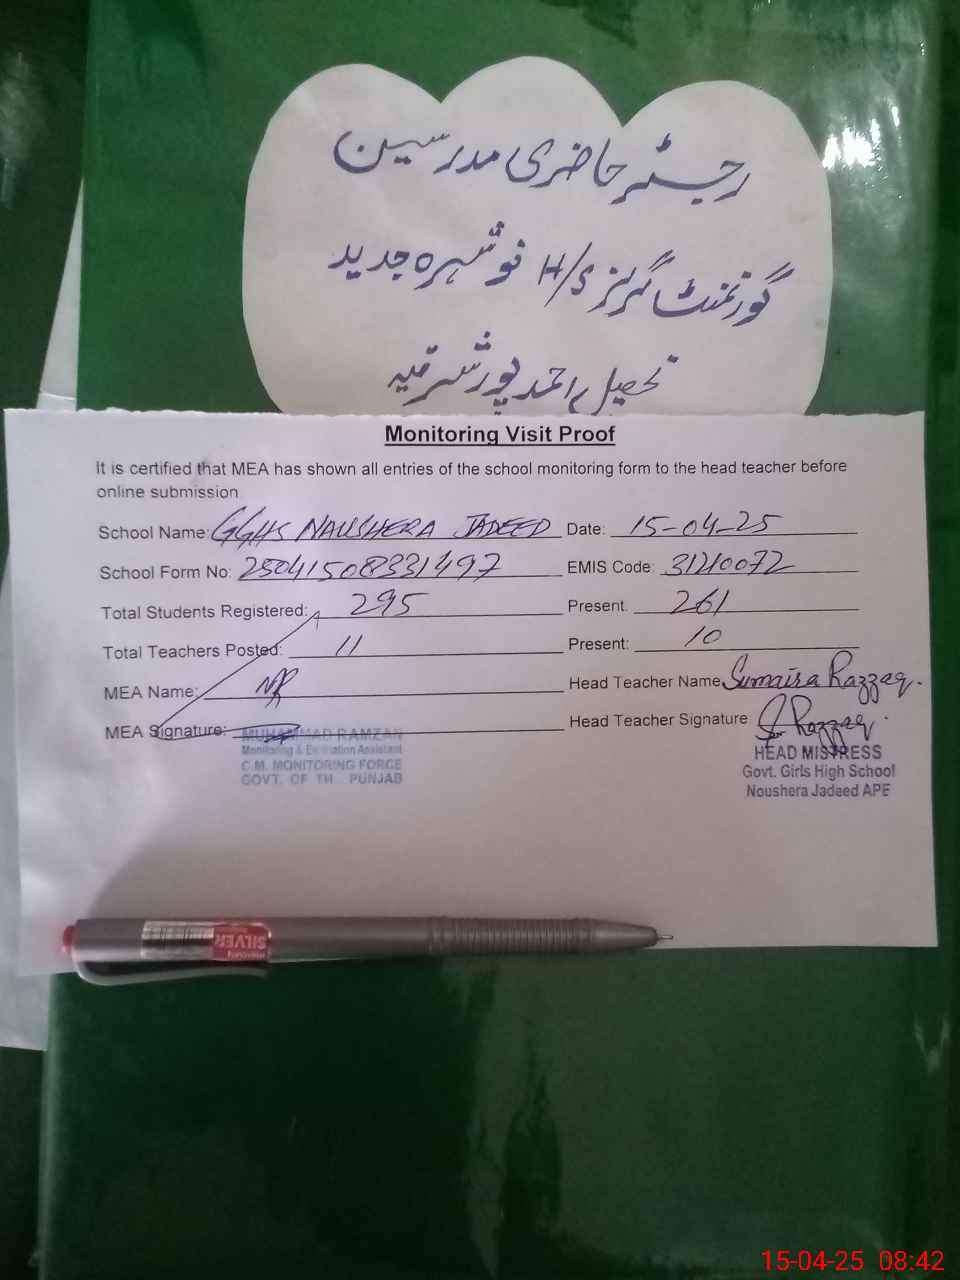 رجسٹر حاضری مدرسین
گورنمنٹ گرلز H/S نوشہرہ جدید
تحصیل احمد پور شرقیہ
Monitoring Visit Proof
It is certified that MEA has shown all entries of the school monitoring form to the head teacher before
online submission
School Name: GGHS NAUSHERA JADEED Date: 15-04-25
School Form No: 25041508331497 EMIS Code: 31210072
Total Students Registered: 295 Present. 261
Total Teachers Posted: 11 Present: 10
MEA Name: MR Head Teacher Name Sumaira Razzaq.
MEA Signature: Head Teacher Signature S. Razzaq.
MUHAMMAD RAMZAN
Monitoring & Evaluation Assistant
C.M. MONITORING FORCE
GOVT. OF TH PUNJAB
HEAD MISTRESS
Govt. Girls High School
Noushera Jadeed APE
SILVER
15-04-25 08:42